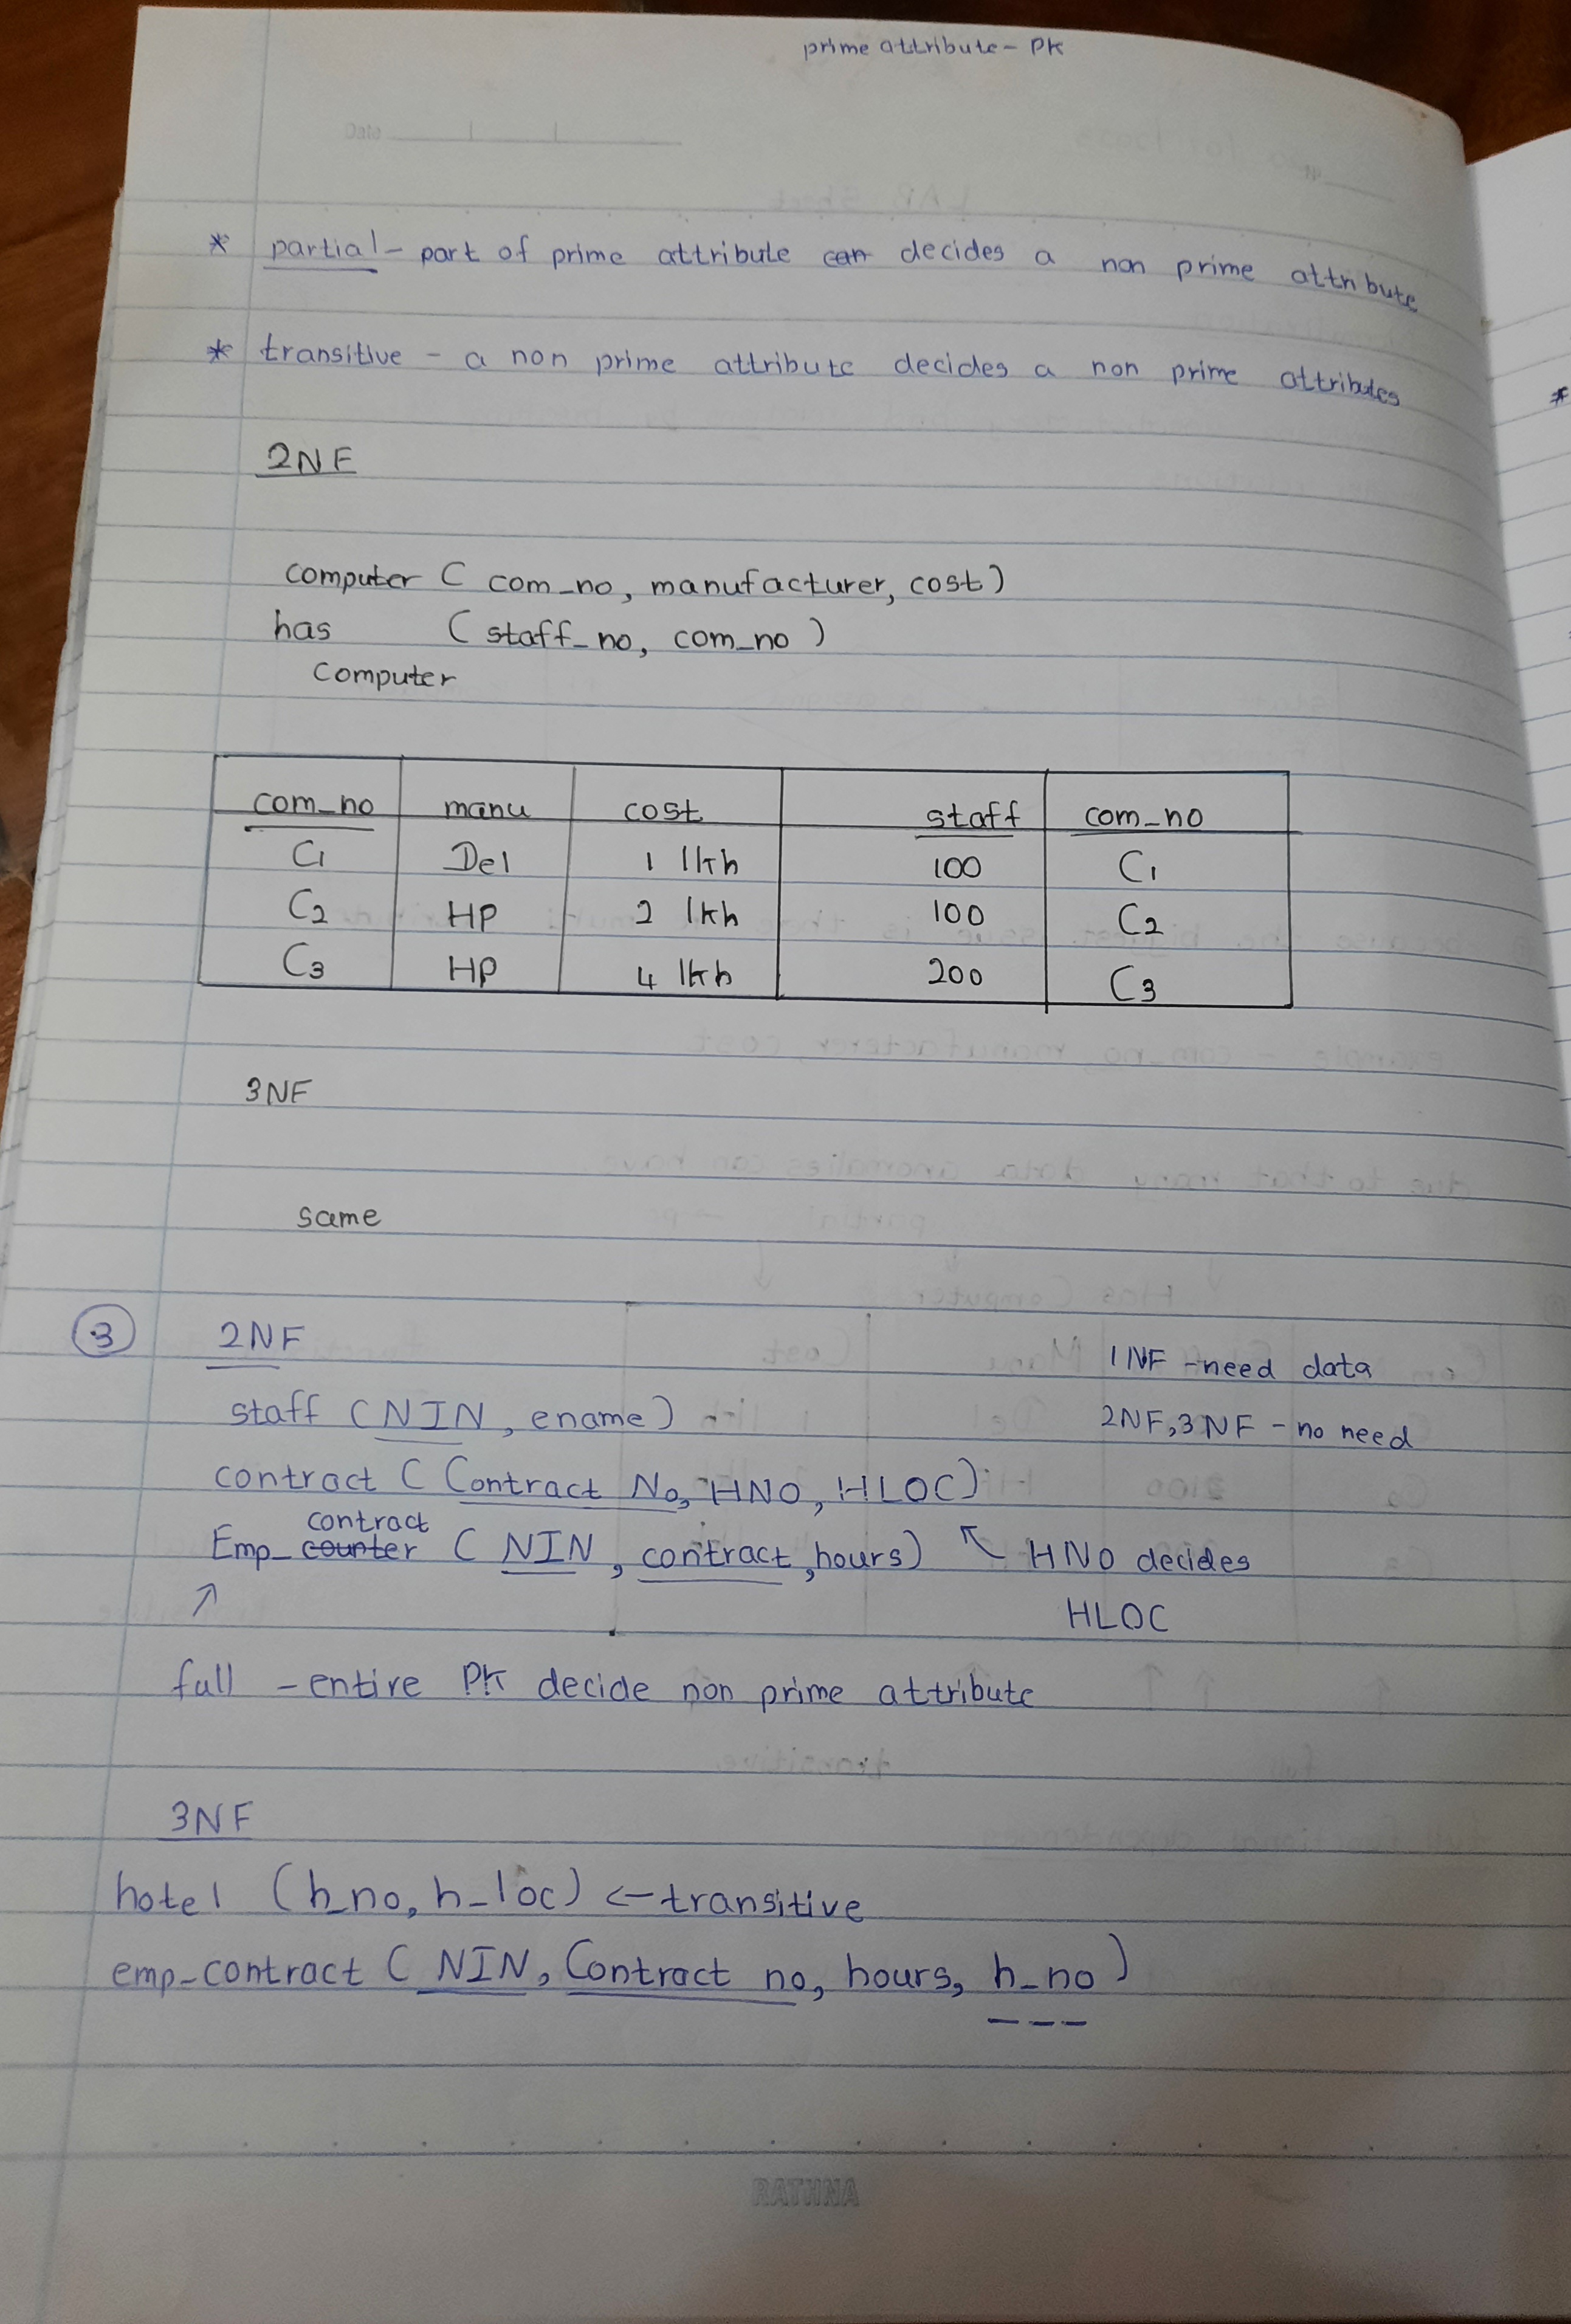 prime attribute - PK
Date
* partial - part of prime attribute can decides a non prime attribute
* transitive - a non prime attribute decides a non prime attributes
2NF
computer ( com_no, manufacturer, cost)
has ( staff_no, com_no )
computer
com_no manu cost staff com_no
C1 Del 1 lkh 100 C1
C2 HP 2 lkh 100 C2
C3 HP 4 lkh 200 C3
3NF
same
3 2NF
1NF - need data
staff (NIN, ename)
2NF,3NF - no need
contract ( Contract No, HNO, HLOC)
contract
Emp_ counter ( NIN, contract, hours) ↖ HNO decides
↗ HLOC
full - entire PK decide non prime attribute
3NF
hotel (h_no, h_loc) <- transitive
emp_contract ( NIN, Contract no, hours, h_no )
RATHNA